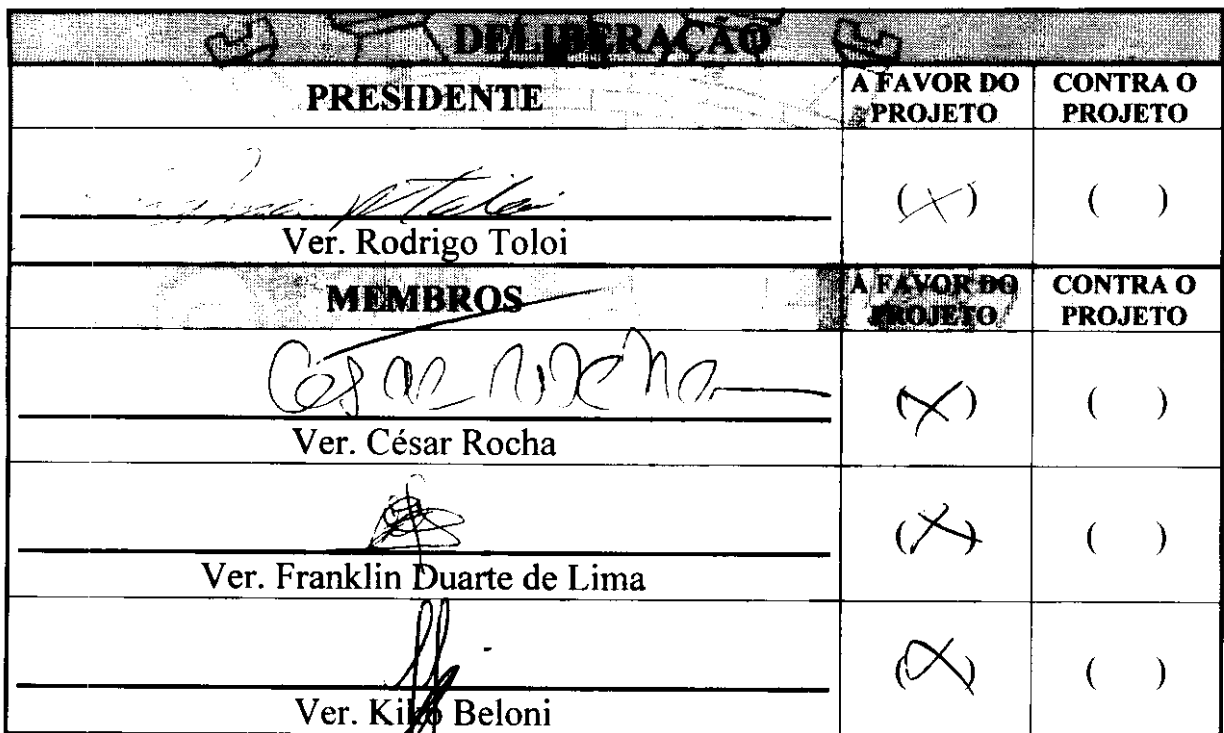 DELIBERAÇÃO
PRESIDENTE A FAVOR DO PROJETO CONTRA O PROJETO
(X) ( )
Ver. Rodrigo Toloi
MEMBROS A FAVOR DO PROJETO CONTRA O PROJETO
César Rocha (X) ( )
Ver. César Rocha
(X) ( )
Ver. Franklin Duarte de Lima
(X) ( )
Ver. Kiko Beloni